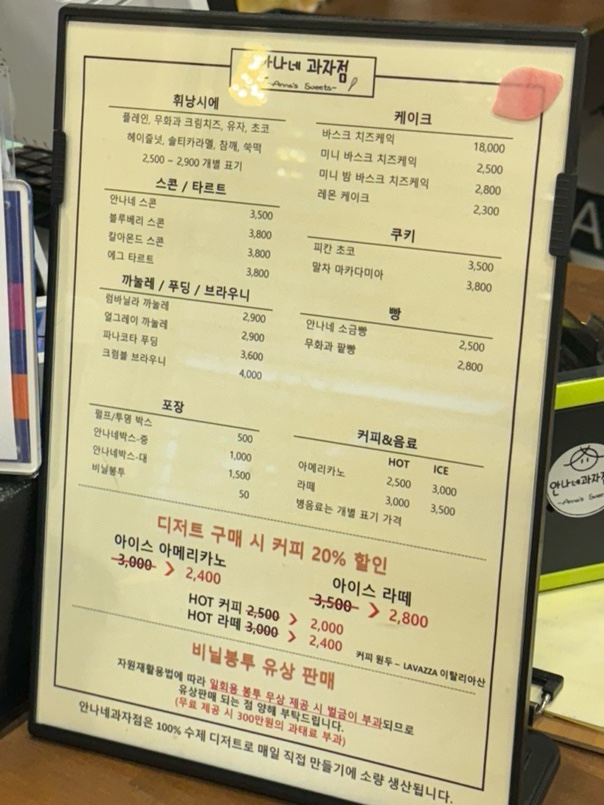 안나네 과자점
-Anna's Sweets-
휘낭시에
플레인, 무화과 크림치즈, 유자, 초코
헤이즐넛, 솔티카라멜, 참깨, 쑥떡
2,500 ~ 2,900 개별 표기
스콘 / 타르트
안나네 스콘 3,500
블루베리 스콘 3,800
칼아몬드 스콘 3,800
에그 타르트 3,800
까눌레 / 푸딩 / 브라우니
럼바닐라 까눌레 2,900
얼그레이 까눌레 2,900
파나코타 푸딩 3,600
크럼블 브라우니 4,000
포장
펄프/투명 박스 500
안나네박스-중 1,000
안나네박스-대 1,500
비닐봉투 50
케이크
바스크 치즈케익 18,000
미니 바스크 치즈케익 2,500
미니 밤 바스크 치즈케익 2,800
레몬 케이크 2,300
쿠키
피칸 초코 3,500
말차 마카다미아 3,800
빵
안나네 소금빵 2,500
무화과 팥빵 2,800
커피&음료
HOT ICE
아메리카노 2,500 3,000
라떼 3,000 3,500
병음료는 개별 표기 가격
디저트 구매 시 커피 20% 할인
아이스 아메리카노
3,000 > 2,400
아이스 라떼
3,500 > 2,800
HOT 커피 2,500 > 2,000
HOT 라떼 3,000 > 2,400
커피 원두 – LAVAZZA 이탈리아산
비닐봉투 유상 판매
자원재활용법에 따라 일회용 봉투 무상 제공 시 벌금이 부과되므로
유상판매 되는 점 양해 부탁드립니다.
(무료 제공 시 300만원의 과태료 부과)
안나네과자점은 100% 수제 디저트로 매일 직접 만들기에 소량 생산됩니다.
안나네과자점
-Anna's Sweets-